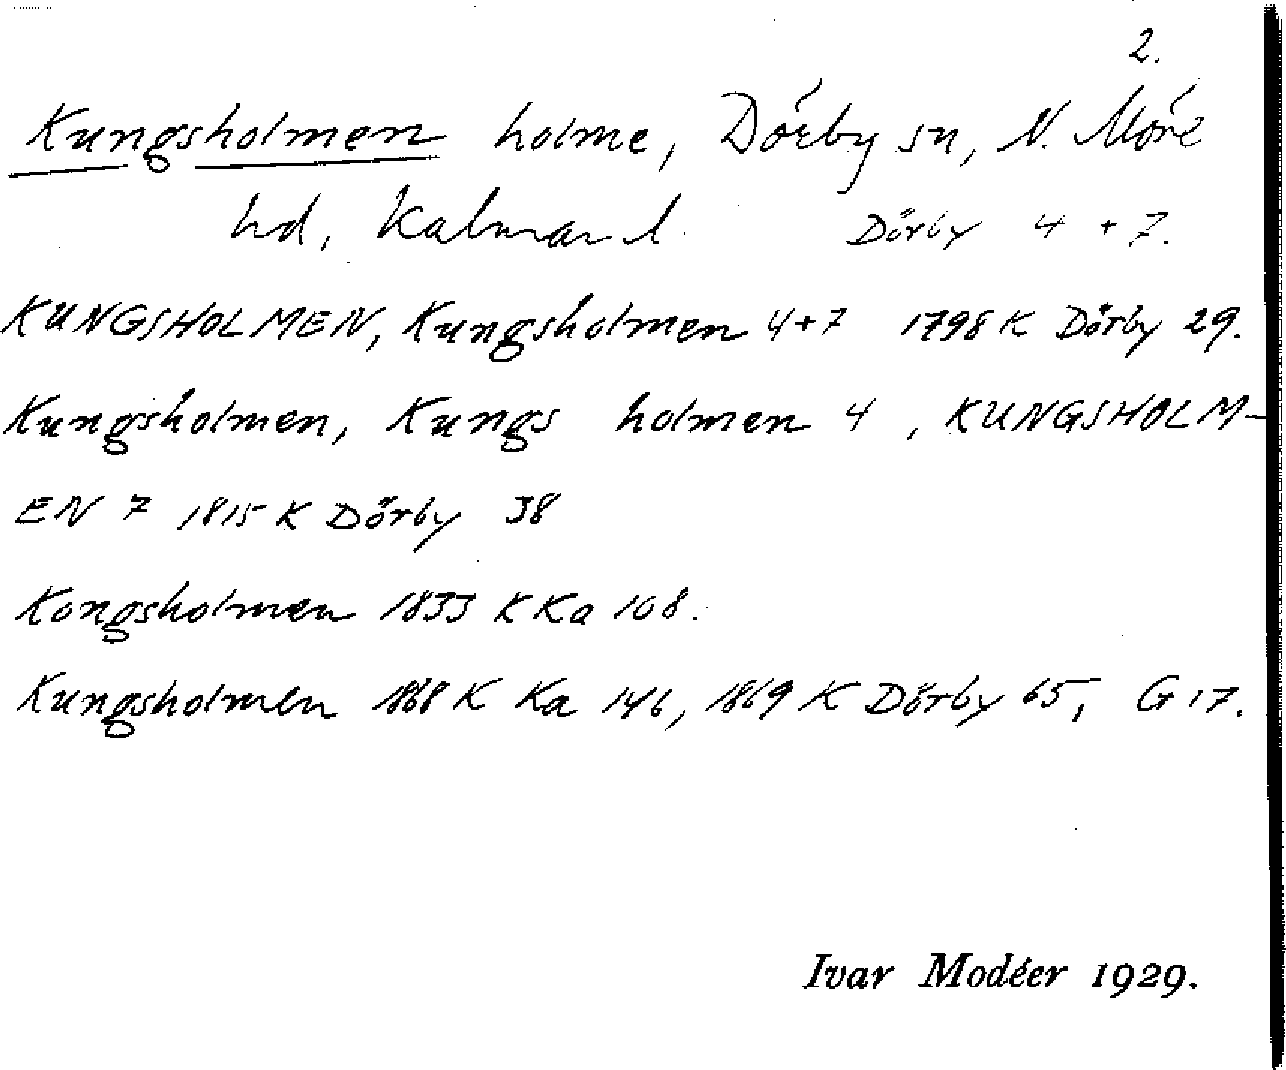 2.
Kungsholmen holme, Dörby sn, N. Möre
hd, Kalmar l. Dörby 4 + 7.
KUNGSHOLMEN, Kungsholmen 4+7 1798 K Dörby 29.
Kungsholmen, Kungs holmen 4, KUNGSHOLM-
EN 7 1815 K Dörby 38
Kongsholmen 1833 K Ka 108.
Kungsholmen 1868 K Ka 146, 1869 K Dörby 65, G 17.
Ivar Modéer 1929.